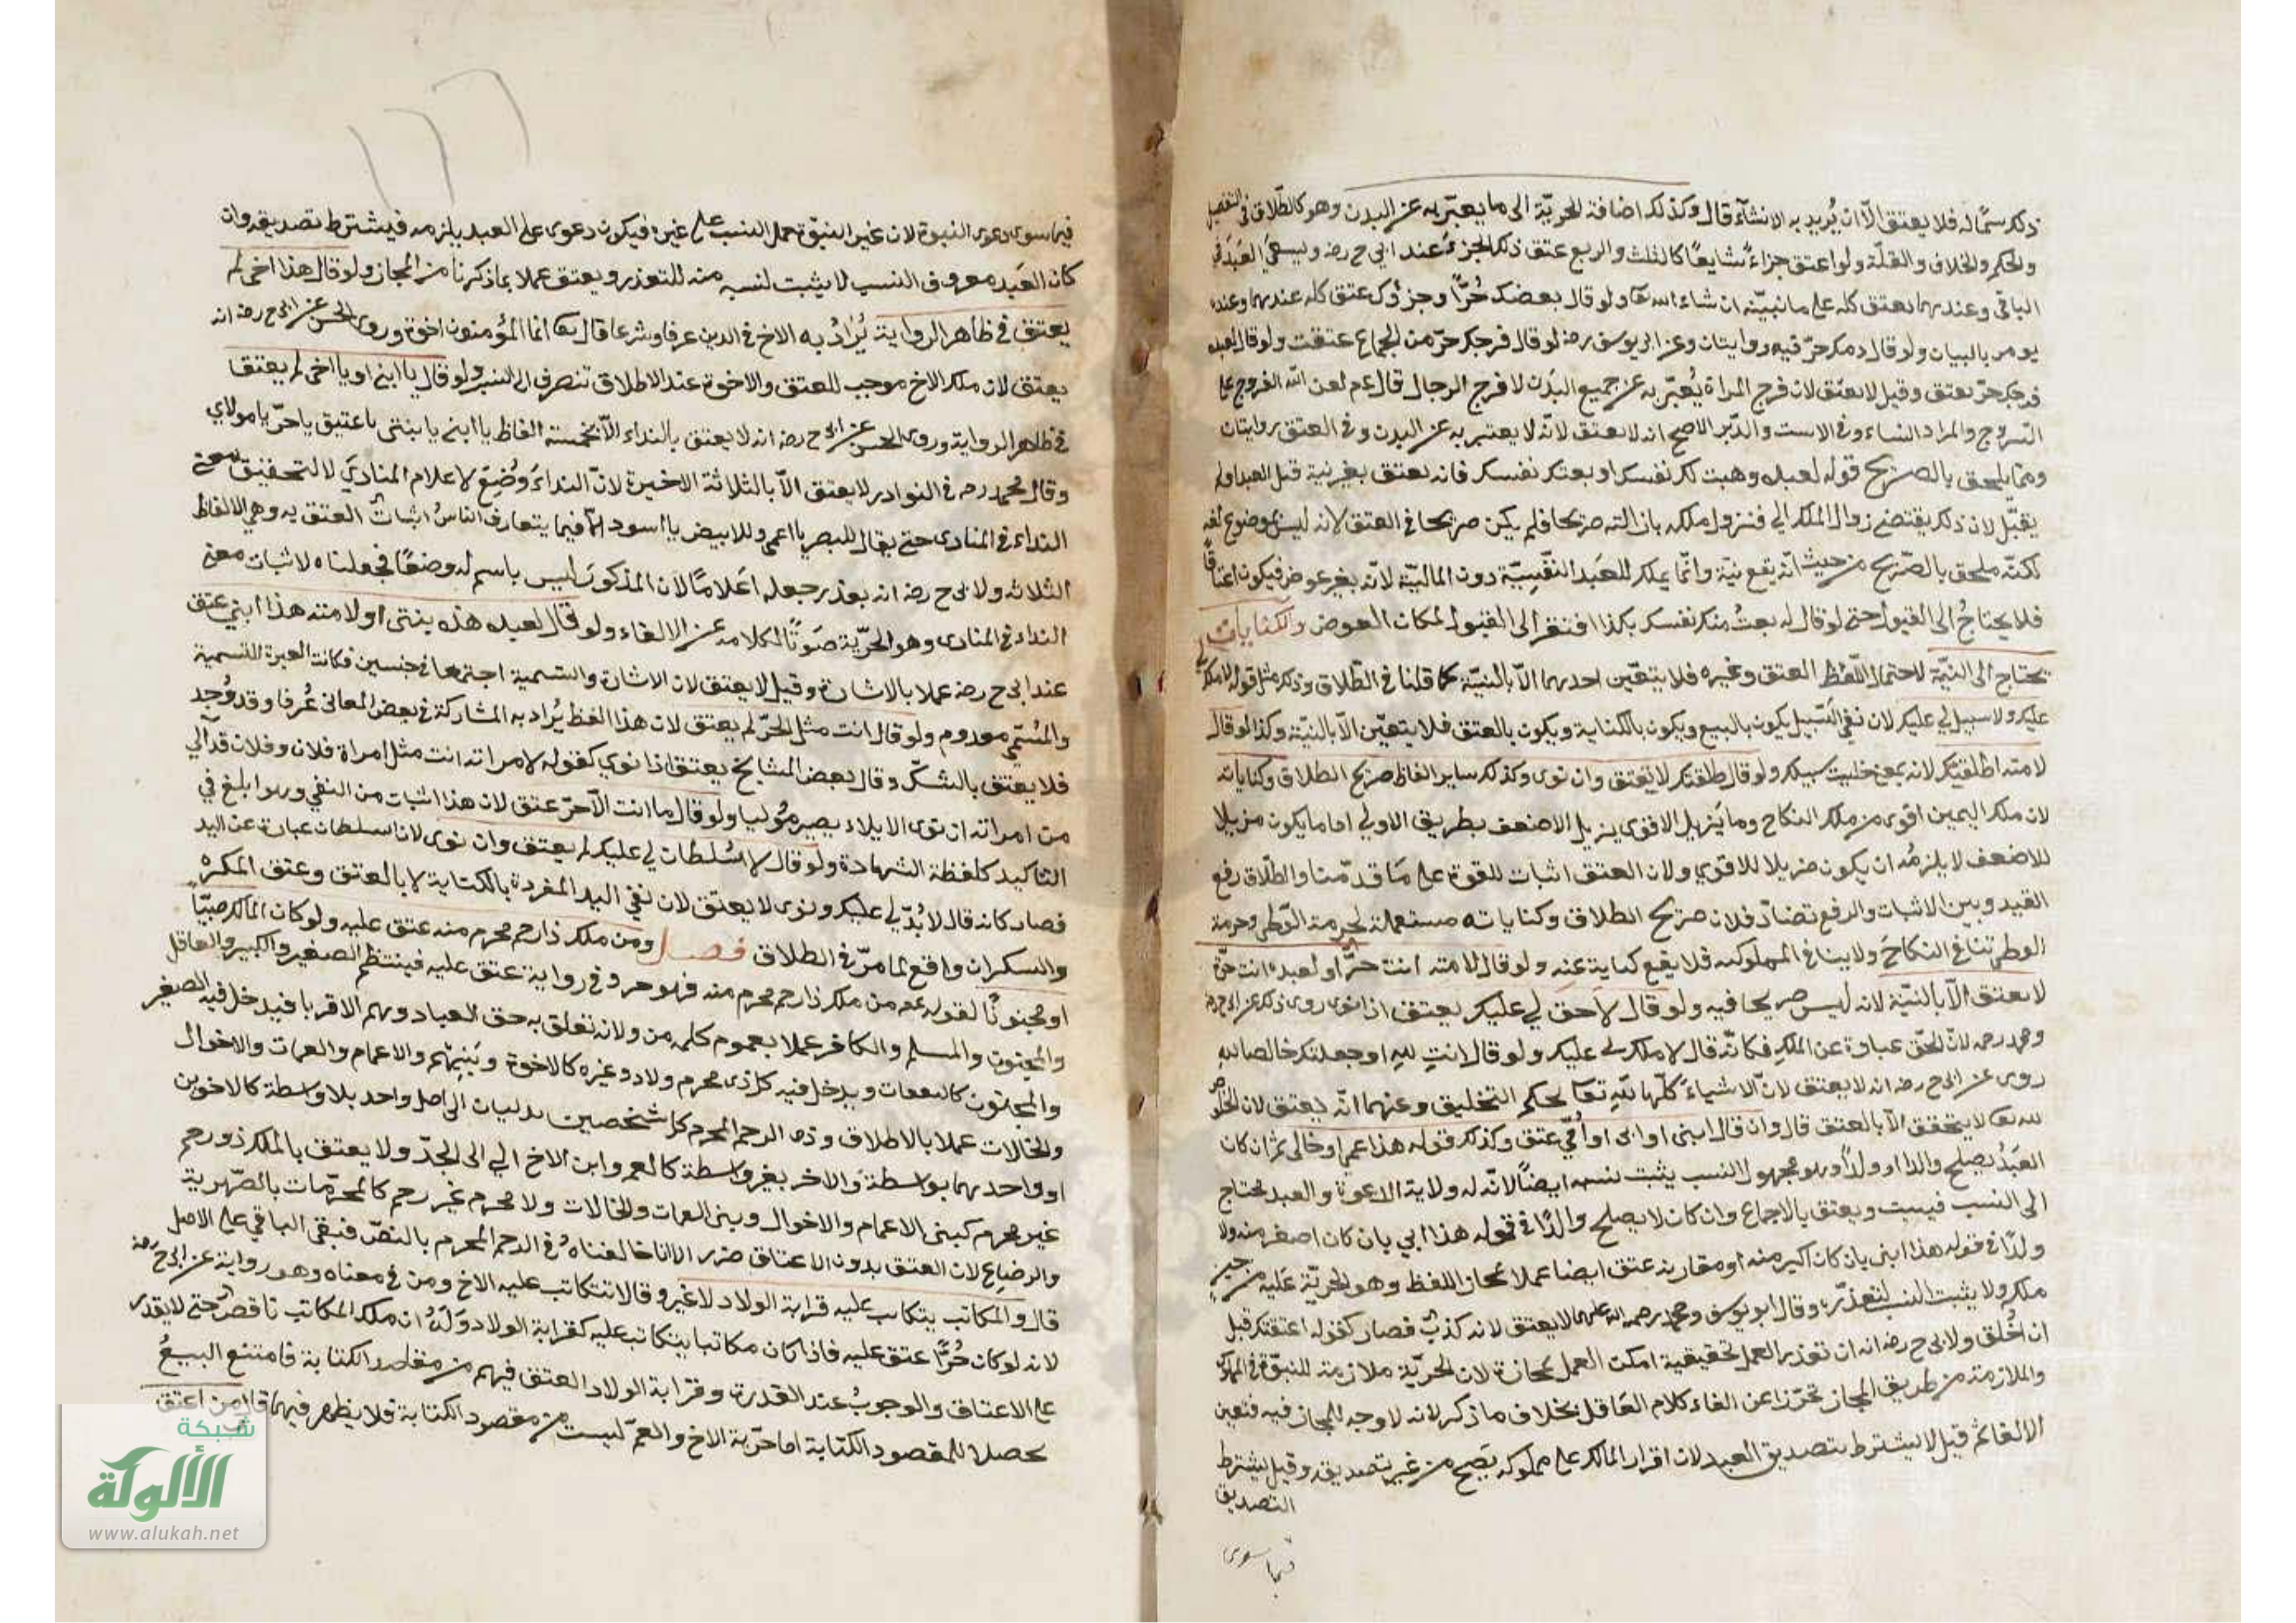 ذكر سمًا له فلا يعتق الا ان يُريد به الانشآء قال وكذلك اضافة الحريّة الى ما يعبّر به عن البدن وهو كالطّلاق فى التفصيل
والحكم والخلاف والقلّة ولو اعتق جزاءً شايعًا كالثلث والربع عتق ذلك الجزءُ عند ابى ح رضه ويسعى العَبَد فى
الباقى وعندهما يعتق كله على ما نبيّنه ان شاء الله تعا ولو قال بعضك حُرًّا وجزؤك عتق كله عندهما وعنده
يومر بالبيان ولو قال دمك حرّ فيه روايتان وعن ابى يوسف رضه لو قال فرجك حرّ من الجماع عتقت ولو قال لعبده
فرجك حرّ يعتق وقيل لا يعتق لان فرج المراة يُعبّر به عن جميع البَدَن لا فرج الرجال قال عم لعن الله الفروج على
السروج والمراد النساء وفى الاست والدّبر الاصح انه لا يعتق لانّه لا يعتبر به عن البدن وفى العتق روايتان
وممّا يلحق بالصّريح قوله لعبده وهبت لك نفسك او بعتك نفسك فانه يعتق بغير نية قبل العبد اولم
يقبّل لان ذلك يقتضى زوال الملك الى فنزول ملكه بازالته صريحا فلم يكن صريحا فى العتق لانه ليس موضوع لغه
لكنّه ملحق بالصّريح من حيث انّه يقع نيّة وانّما يملك للعبَد النّفسِيّة دون الماليّة لانّه بغير عوض فيكون اعتاقًا
فلا يحتاجُ الى القبول حتى لو قال له بعتُ منك نفسك بكذا افتقر الى القبول لمكان العوض والكنايات
يحتاج الى النيّة لاحتمال اللّفظ العتق وغيره فلا يتعّين احدهما الاّ بالنيّة كما قلنا فى الطّلاق وذلك مثل قوله لا ملك لى
عليك ولا سبيل لى عليك لان نفى السّبيل يكون بالبيع ويكون بالكتابة ويكون بالعتق فلا يتعيّن الاّ بالنيّة وكذا لو قال
لامته اطلقتك لانه بمعنى خليت سبيلك ولو قال طلقتك لا يعتق وان نوى وكذلك ساير الفاظ صريح الطلاق وكناياته
لان ملك اليمين اقوى من ملك النكاح وما يَزيل الاقوى يزيل الاضعف بطريق الاولى اما ما يكون مزيلا
للاضعف لا يلزمُه ان يكون مزيلا للاقوى ولان العتق اثبات للقوة على مَا قدّمنا والطّلاق رفع
القيد وبين الاثبات والرفع تضادّ فلان صريح الطلاق وكناياته مستعملة لحرمة الوطى وحرمة
الوطى تنافى النكاحَ ولا ينافى المملوكيه فلا يقع كناية عنه ولو قال لامته انت حرًّ او لعبده انت حرّة
لا يعتق الاّ بالنيّة لانه ليس صريحا فيه ولو قال لا حق لى عليك يعتق اذا نوى روى ذلك عن ابى ح رضه
ومحمد رحمه لانّ الحّق عبارة عن الملك فكانّه قال لا ملك لى عليك ولو قال انتِ للهِ او جعلتك خالصا لله
روى عن ابى ح رضه انه لا يعتق لانّ الاشياءَ كلّها للهِ تعا لحكم التخليق وعنهما انّه يعتق لان الخلوص
لله تعا لا يتحقق الاّ بالعتق قال وان قال ابنى او ابى او اُمّى عتق وكذلك قوله هذا عمى او خالى ثم ان كان
العَبَدُ يصلح والدا او ولدًا وهو مجهول النسب يثبت نسبه ايضاً لانّه له ولاية الدعوة والعبد محتاج
الى النسب فيثبت ويعتق بالاجماع وان كان لا يصلح والدًا فى قوله هذا ابي بان كان اصغر منه ولا
ولدًا فى قوله هذا ابنى بان كان اكبر منه او مقاربه عتق ايضا عملا بمجاز اللفظ وهو الحريّة عليه من حين
ملكه ولا يثبت النسب لتعذرّه وقال ابو يوسف ومحمد رحمه الله عليهما لا يعتق لانه كذبٌ فصار كقوله اعتقتك قبل
ان اُخلق ولابى ح رضه انه ان تعذر العمل بحقيقية امكن العمل بمجازة لان الحريّة ملازمة للبنوّة فى المملوك
والملازمة من طريق المجاز تحرّزا عن الغاء كلام العَاقل بخلاف ما ذكر لانه لا وجه للمجاز فيه فتعين
الالغا ثم قيل لا يشترط تصديق العبد لان اقرار المالك على مملوكه يَصح من غير تصديقه وقيل يشترط
التصديق
فيما سوى
فيما سوى دعوى البنوة لان غير البنوّة حمل النسب على غيره فيكون دعوى على العبد يلزمه فيشترط تصديقه وان
كان العَبَد معروف النسب لا يثبت نسبه منه للتعذر ويعتق عملا بما ذكرنا من المجاز ولو قال هذا اخى لم
يعتق فى ظاهر الرواية يُرَادُ به الاخ فى الدين عرفا وشرعا قال تعا انما المُؤمنون اخوة وروى الحسن عن ابى ح رضه انه
يعتق لان ملك الاخ موجب للعتق والاخوة عند الاطلاق تنصرف الى النسب ولو قال يا ابنى او يا اخى لم يعتق
فى ظاهر الرواية وروى الحسن عن ابى ح رضه انه لا يعتق بالنداء الاّ بخمسة الفاظ يا ابنى يا بنتى يا عتيق يا حرّ يا مولاى
وقال محمد رحه فى النوادر لا يعتق الاّ بالثلاثة الاخيرة لانّ النداءَ وُضِعَ لاعلام المنادَى لا لتحقيق معنى
النداء فى المنادى حتى يقال للبصر يا اعمى وللابيض يا اسود الاّ فيما يتعارف الناسُ اثباتَ العتق به وهى الالفاظ
الثلاث ولابى ح رضه انه يعذر جعله اعَلامًا لان المذكورَ ليس باسم له وضعًا فجعلناه لاثبات معنى
النداء فى المنادى وهو الحرّية صَوتًا لكلامه عن الالغاء ولو قال لعبده هذه بنتى او لامته هذا ابنى عتق
عند ابى ح رضه عملا بالاشارة وقيل لا يعتق لان الاشارة والتسمية اجتمعا فى جنسين فكانت العبرة للتسمية
والمُسمّى معدوم ولو قال انت مثل الحرّ لم يعتق لان هذا الفظ يُراد به المشاركة فى بعض المعانى عُرفا وقد وُجد
فلا يعتق بالشكّ وقال بعض المشايخ يعتق اذا نوى كقوله لامراته انت مثل امراة فلان وفلان قد آلى
من امراته ان نوى الايلاء يصير مُوليا ولو قال ما انت الاّ حرّ عتق لان هذا اثبات من النفى وهو ابلغ فى
التاكيد كلفظة الشهادة ولو قال لا سُلطان لى عليك لم يعتق وان نوى لان السلطان عبارة عن اليد
فصار كانه قال لا يُدّ لى عليك ونوى لا يعتق لان نفى اليد المفردة بالكتابة لا بالعتق وعتق المكره
والسكران واقع لما مرّ فى الطلاق فصل ومن ملك ذا رحم محرم منه عتق عليه ولو كان المالك صَبيّا
او مجنونًا لقوله عم من ملك ذا رحم محرم منه فهو حر وفى رواية عتق عليه فينتظم الصغير والكبير والعاقل
والمجنون والمسلم والكافر عملا بعموم كلمه من ولانه تعلق به حق العباد وهم الاقربا فيدخل فيه الصغير
والمجنون كالنفقات ويدخل فيه كل ذى محرم ولاد وغيره كالاخوة وبَنيهم والاعمام والعمات والاخوال
والخالات عملا بالاطلاق وذى الرحم المحرم كل شخصين يدليان الى اصل واحد بلا واسطة كالاخوين
او واحدهما بواسطة والاخر بغير واسطة كالعم وابن الاخ الى الجدّ ولا يعتق بالملك ذو رحم
غير محرم كبنى الاعمام والاخوال وبنى العمات والخالات ولا محرم غير رحم كالمحرّمات بالصّهرية
والرضاع لان العتق بدون الاعتاق ضرر الا انا خالفناهُ فى الرحم المحرم بالنصّ فبقى الباقى على الاصل
قال والمكاتب يتكاتب عليه قرابة الولاد لا غير وقالا تتكاتب عليه الاخ ومن فى معناه وهو رواية عن ابى ح رضه
لانه لو كان حُرًّا عتق عليه فاذا كان مكاتبا يتكاتب عليه كقرابة الولاد وَلَهُ ان ملك المكاتب ناقصٌ حتى لا يقدر
على الاعتاق والوجوبُ عند القدرة وقرابة الولاد العتق فيهم من مقاصد الكتابة فامتنع البيعُ
تحصلا للمقصود الكتابة اما حرّية الاخ والعمّ ليست من مقصود الكتابة فلا يظهر فيهما قال ومن اعتق
١٢٦
شبكة
الألوكة
www.alukah.net